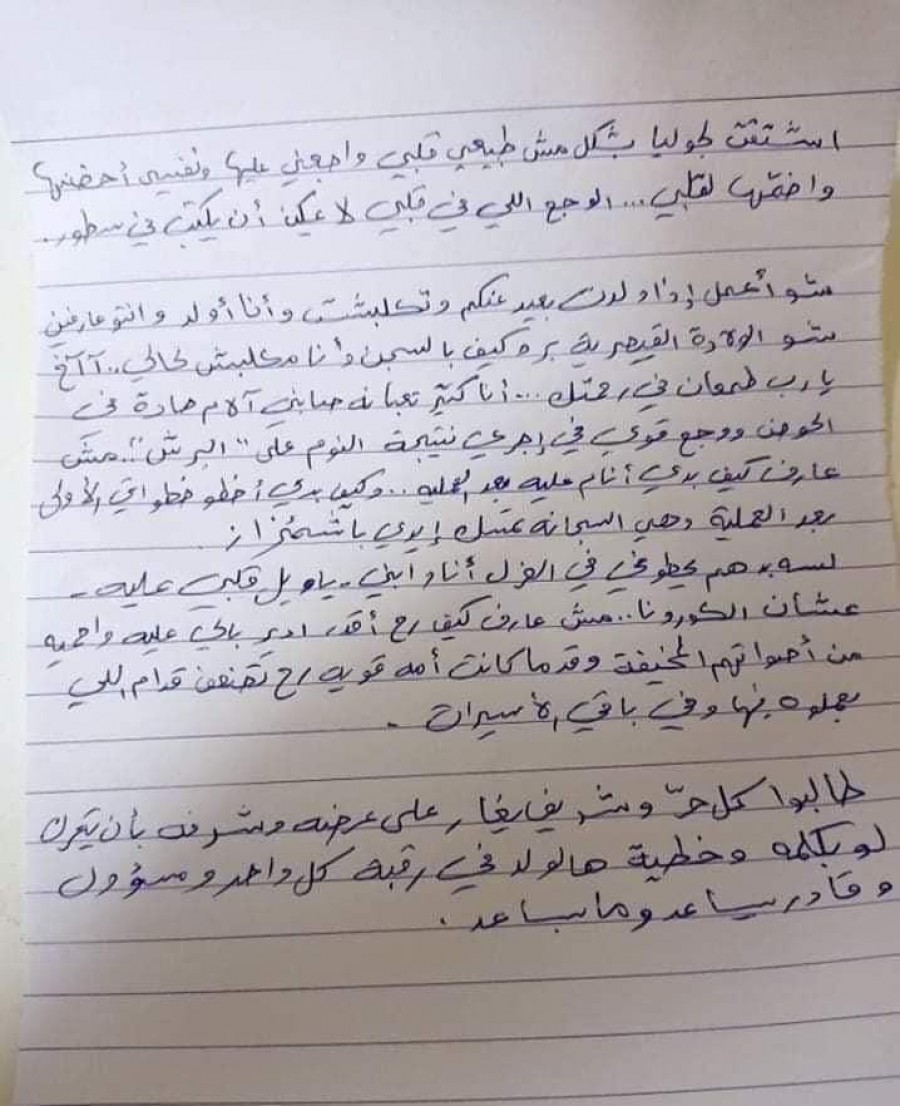 استقت لجوليا بشكل مش طبيعي قلبي واجعني عليها ونفسي أحضنها
واضمّها لقلبي... الوجع اللي في قلبي لا يمكن أن يكتب في سطور.
شو أعمل إذا ولدت بعيد عنكم وتكلبشت وأنا أولد وانتو عارفين
شو الولادة القيصرية برة كيف بالسجن وأنا مكلبش لحالي.. آآخ
يا رب طمعان في رحمتك... أنا كثير تعبانه صابني آلام حادة في
الحوض ووجع قوي في إجري نتيجة النوم على "البرش".. مش
عارف كيف بدي أنام عليه بعد العمليه.. وكيف بدي أخطو خطواتي الأولى
بعد العملية وهي السجانه تمسك إيدي باشمئزاز.
لسه بدهم يحطوني في العزل أنا وابني - يا ويل قلبي عليه -
عشان الكورونا.. مش عارف كيف رح أقدر ادير بالي عليه واحميه
من أصواتهم المخيفة وقد ما كانت أمه قويه رح تضعف قدام اللي
بعملوه فيها وفي باقي الأسيرات -
طالبوا كل حرّ وشريف يغار على عرضه وشرفه بأن يتحرك
لو بكلمه وخطية هالولد في رقبة كل واحد ومسؤول
وقادر يساعد وما ساعد.